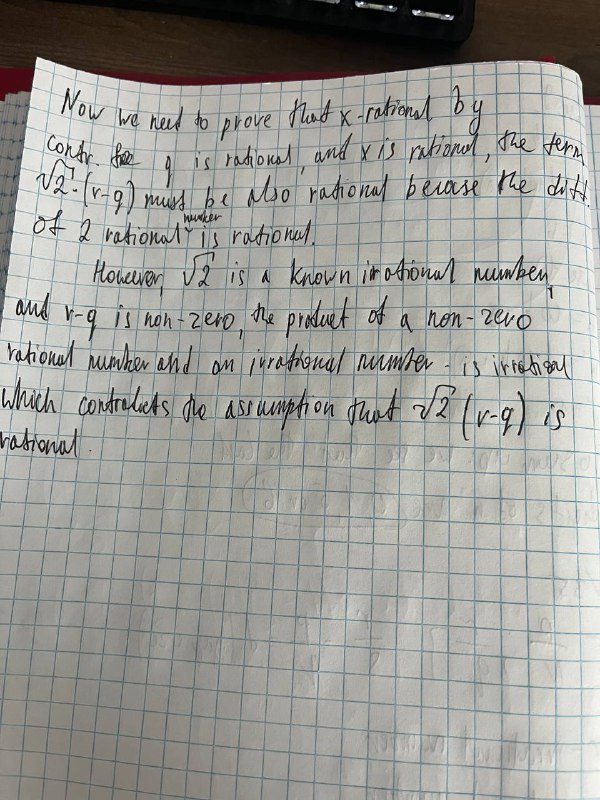 Now we need to prove that x-rational by
contr. q is rational, and x is rational, the term
√2 · (r-q) must be also rational becase the diff.
of 2 rational number is rational.
However, √2 is a known irrational number,
and r-q is non-zero, the product of a non-zero
rational number and an irrational number - is irrational
which contradicts the assumption that √2 (r-q) is
rational.